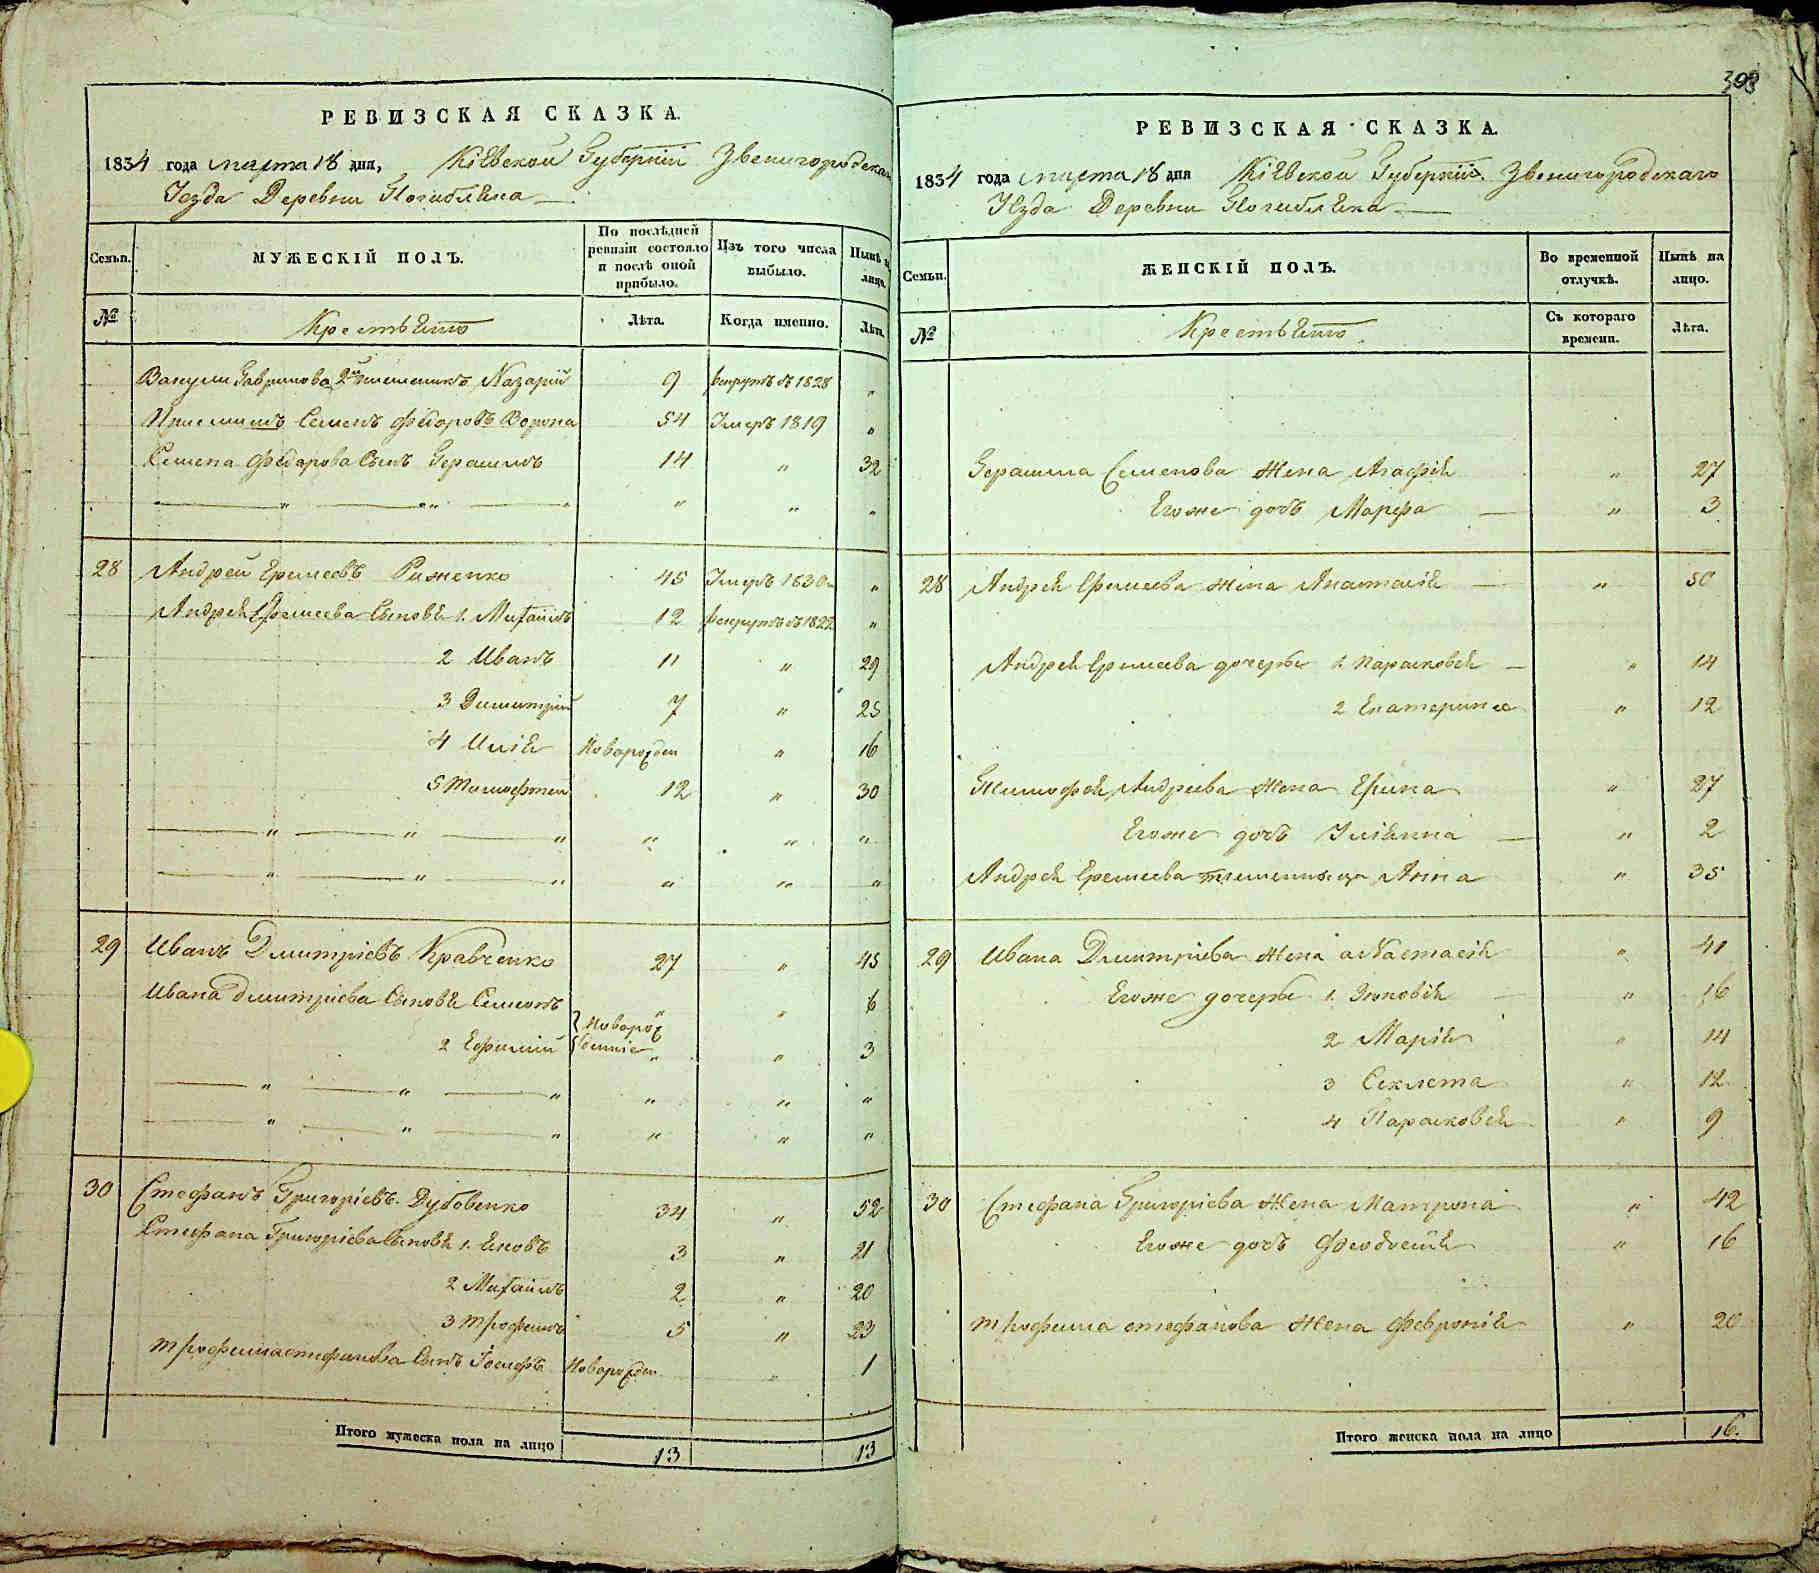 РЕВИЗСКАЯ СКАЗКА.
1834 года марта 18 дня, Кіевской Губерніи Звенигородска
Уезда Деревни Погибляка
Семьи.
МУЖЕСКІЙ ПОЛЪ.
По послѣдней ревизіи состояло и послѣ оной прибыло.
Изъ того числа выбыло.
Нынѣ на лицо.
№
Крестьяно
Лѣта.
Когда именно.
Лѣта.
Вакулы Гаврилова 2й племеникъ Назарій 9 рекрутъ въ 1828 "
Приемышъ Семенъ Федоровъ Ворона 54 Умеръ 1819 "
Семена Федорова Сынъ Герасимъ 14 " 32
" " " " " "
28 Андрей Еремеевъ Риженко 45 Умеръ 1830 "
Андрея Еремеева Сыновя 1. Михайлъ 12 рекрутъ въ 1822 "
2 Иванъ 11 " 29
3 Димитрій 7 " 25
4 Илія Новорожден " 16
5 Тимофтей 12 " 30
" " " " " "
" " " " " "
29 Иванъ Дмитріевъ Кравченко 27 " 45
Ивана Дмитріева Сыновя Семионъ " " 6
Новорож
2 Ефимій денніе " " 3
" " " " " "
" " " " " "
30 Стефанъ Григоріевъ Дубовенко 34 " 52
Стефана Григоріева Сыновя 1. Яковъ 3 " 21
2 Михайлъ 2 " 20
3 Трофимъ 5 " 23
Трофима Стефанова Сынъ Іосифъ Новорожден " 1
Итого мужеска пола на лицо 13 13
303
РЕВИЗСКАЯ СКАЗКА.
1834 года марта 18 дня Кіевской Губерніи Звенигородскаго
Уезда Деревни Погибляка
Семьи.
ЖЕНСКІЙ ПОЛЪ.
Во временной отлучкѣ.
Нынѣ на лицо.
№
Крестьяно
Съ котораго времени.
Лѣта.
Герасима Семенова Жена Агафія " 27
Егоже дочь Марфа " 3
28 Андрея Еремеева жена Анастасія " 50
Андрея Еремеева дочеры 1. Парасковія " 14
2 Екатерина " 12
Тимофея Андреева Жена Ерина " 27
Егоже дочь Уліянна " 2
Андрея Еремеева племенница Анна " 35
29 Ивана Дмитріева Жена анастасія " 41
Егоже дочеры 1. Зиновія " 16
2 Марія " 14
3 Секлета " 12
4 Парасковія " 9
30 Стефана Григоріева Жена Матрона " 42
Егоже дочъ Феодосія " 16
Трофима стефанова Жена Февронія " 20
Итого женска пола на лицо 16.